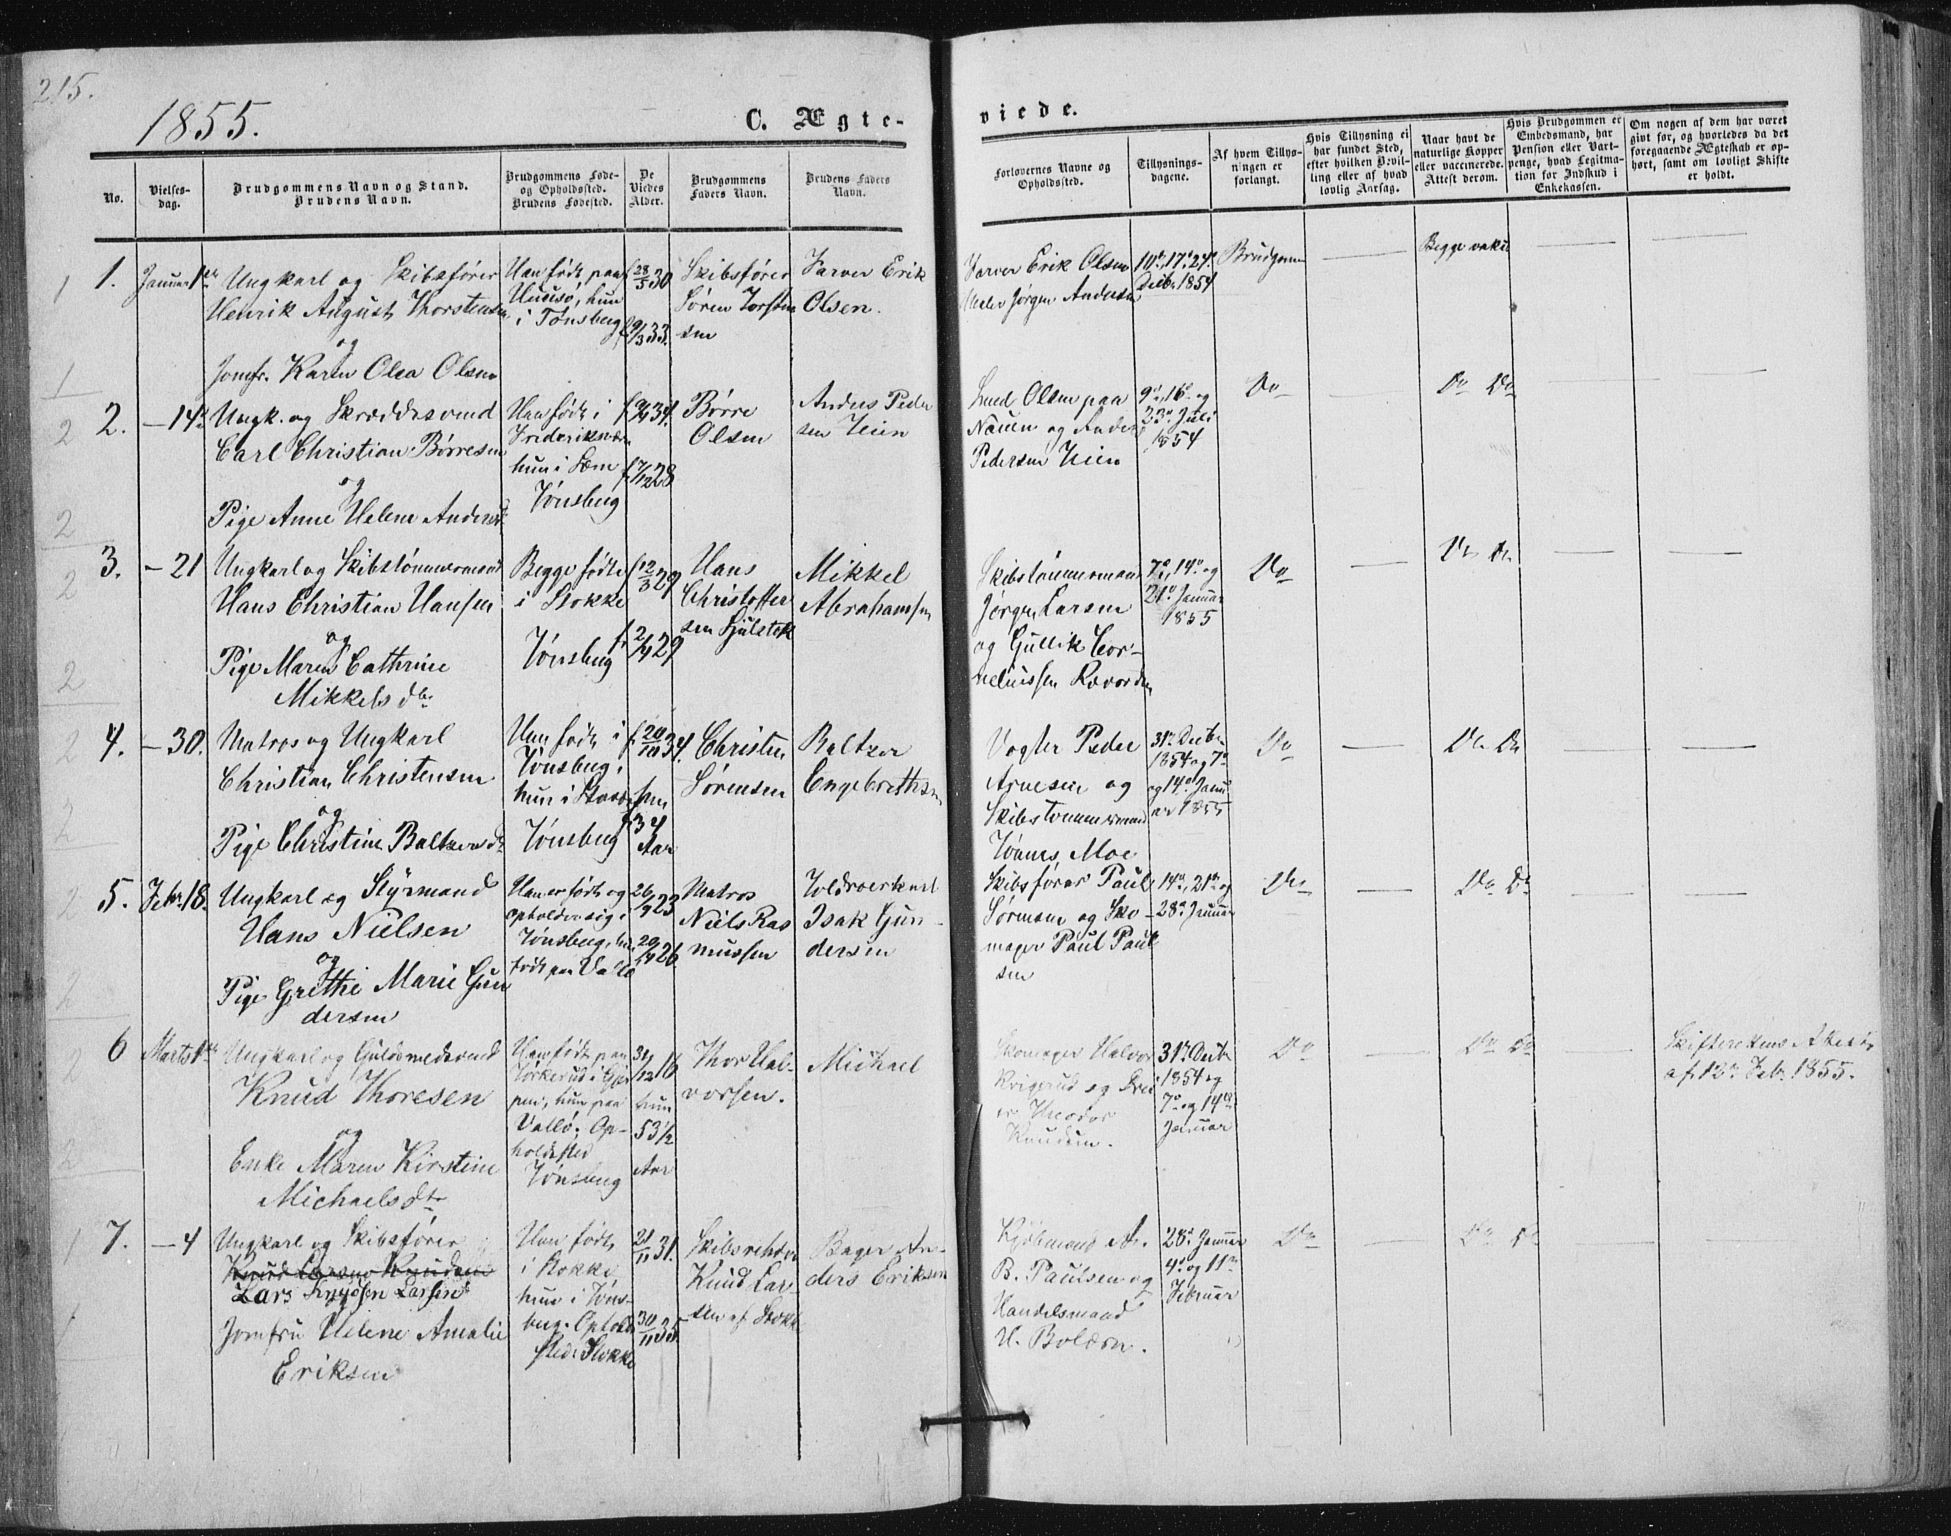 215.
1855.
C. Ægte-
viede.
No.
Vielses-
dag.
Brudgommens Navn og Stand.
Brudens Navn.
Brudgommens Føde-
og Opholdssted.
Brudens Fødested.
De
Viedes
Alder.
Brudgommens
Faders Navn.
Brudens Faders
Navn.
Forlovernes Navne og
Opholdssted.
Tillysnings-
dagene.
Af hvem Tillys-
ningen er
forlangt.
Hvis Tillysning ei
har fundet Sted,
efter hvilken Bevil-
ling eller af hvad
lovlig Aarsag.
Naar havt de
naturlige Kopper
eller vaccinerede.
Attest derom.
Hvis Brudgommen er
Embedsmand, har
Pension eller Vart-
penge, hvad Legitma-
tion for Indskud i
Enkekassen.
Om nogen af dem har været
givt før, og hvorledes da det
foregaaende Ægteskab er op-
hørt, samt om lovligt Skifte
er holdt.
1.
Januar 1ste
Ungkarl og Skibsfører
Henrik August Thorstensen
og
Jomfr. Karen Olea Olsen
Han født paa
Husø, hun
i Tønsberg
f. 28/5 30
f. 9/3 33.
Skibsfører
Søren Torsten
sen
Farver Erik
Olsen.
Farver Erik Olsen
Maler Jørgen Andersen
10de, 17de, 24de
Decbr. 1854
Brudgommen
Begge vakc
2.
– 14de
Ungk. og Skræddersvend
Carl Christian Børresen
og
Pige Anne Helene Andersd.
Han født i
Frederiksværn
hun i Sem
Tønsberg
f. 9/4 34.
f. 7/12 28
Børre
Olsen
Anders Peder
sen Heien
Smed Olsen paa
Nauen og Anders
Pedersen Heien
9de, 16de og
23de Juli
1854
Do
Do Do
3.
– 21
Ungkarl og Skibstømmermand
Hans Christian Hansen
og
Pige Maren Cathrine
Mikkelsdtr
Begge fødte
i Stokke
Tønsberg
f. 12/3 29
f. 2/4 29
Hans
Christoffer
sen Hjulstok
Mikkel
Abrahamsen
Skibstømmermand
Jørgen Larsen
og Gullik Cor-
neliussen Ravordn
7de, 14de og
21de Januar
1855
Do
Do Do
4.
– 30.
Matros og Ungkarl
Christian Christensen
og
Pige Christine Baltzersdtr
Han født i
Tønsberg,
hun i
Tønsberg
f. 20/10 34.
hun
34
Aar
Christen
Sørensen
Baltzer
Engebrethsen
Vogter Peder
Arnesen og
Skibstømmermand
Tønnes Moe
31te Decbr
1854 og 7de
og 14de Janu
ar 1855
Do
Do Do
5.
Febr. 18.
Ungkarl og Styrmand
Hans Nielsen
og
Pige Grethe Marie Gun
dersen
Han er født og
opholder sig i
Tønsberg, hun
født paa Vallø
26/9 23
29/4 26
Matros
Niels Ras
mussen
Toldroerkarl
Isak Gun-
dersen
Skibsfører Paul
Sørensen og Sko-
mager Paul Paul
sen
14de, 21de og
28de Januar
Do
Do Do
6
Marts 1ste
Ungkarl og Guldsmedsvend
Knud Thoresen
og
Enke Maren Kirstine
Michaelsdtr
Han født paa
i Gjer
pen, hun paa
Vallø. Op-
holdssted
Tønsberg
31/12 16
hun
53 1/2
Aar
Thor Hal-
vorsen.
Michael
Skomager Halvor
Krigerud og Drei
er Theodor
Knudsen.
31te Decbr
1854 og
7de og 14de
Januar
Do
Do Do
Skifterettens Attest
af 12te Febr. 1855.
7.
– 4
Ungkarl og Skibsfører
Knud Larsen Knudsen
Lars Knudsen Larsen
Jomfru Helene Amalie
Eriksen
Han født
i Stokke,
hun i Tøns-
berg. Opholds
sted: Stokke
21/11 31.
30/11 35
Skibsreder
Knud Lar-
sen af Stokke
Bager An-
ders Eriksen
Kjøbmand A.
B. Paulsen og
Handelsmand
H. Bolærn.
28de Januar
4de og 11te
Februar
Do
Do Do